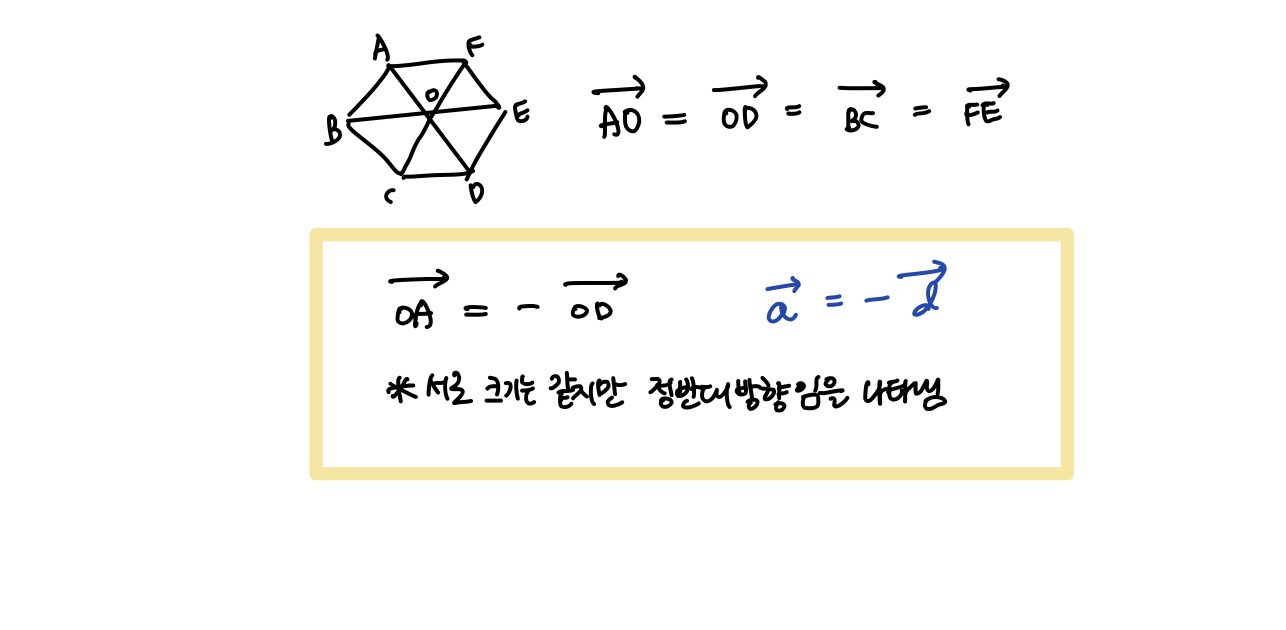 A F
O
B E
C D
AO = OD = BC = FE
OA = - OD
a = - d
* 서로 크기는 같지만 정반대방향임을 나타냄